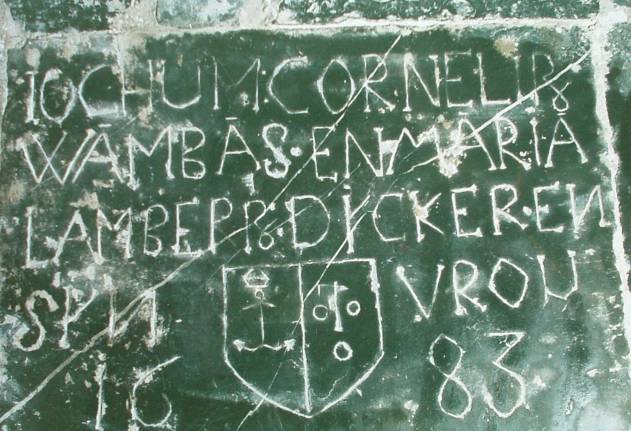 IOCHUM:CORNELIß
WAMBAS·EN MARIA
LAMBERß·DICKER·EN
VROU
16 83